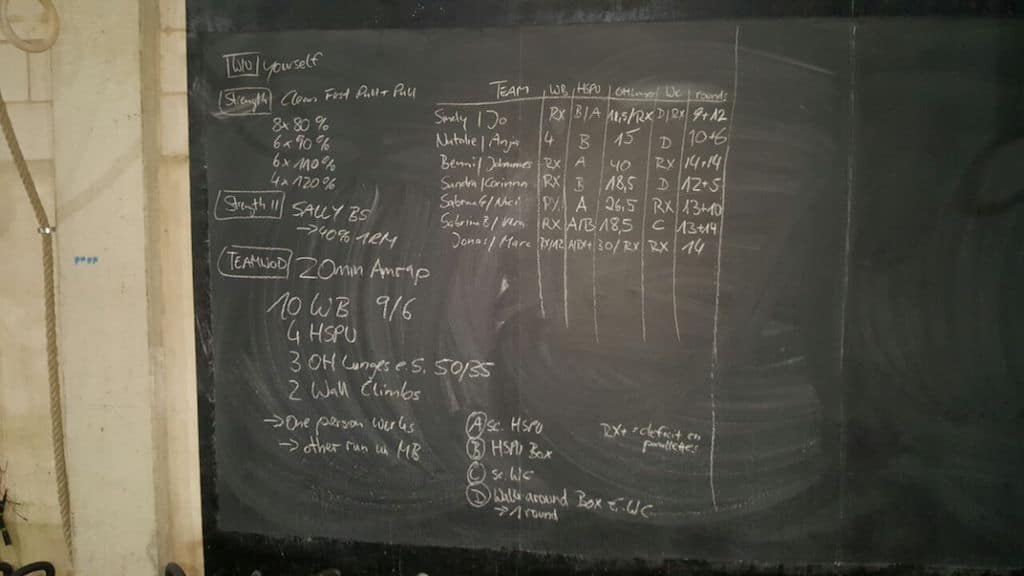 WU yourself
Strength Clean First Pull + Pull
8x 80 %
6x 90 %
6x 110 %
4x 120 %
Strength II SALLY BS
→ 40% 1RM
TEAMWOD 20min Amrap
10 WB 9/6
4 HSPU
3 OH Lunges e.S. 50/35
2 Wall Climbs
→ One person works
→ other run w MB
TEAM WB HSPU OH Lunges WC rounds
Sandy / Jo RX B/A 18,5/RX D/RX 9+12
Natalie / Anja 4 B 15 D 10+6
Benni / Johannes RX A 40 RX 14+14
Sandra / Corinna RX B 18,5 D 12+5
Sabrina G / A 26,5 RX 13+10
Sabrina B / RX A/B 18,5 C 13+14
Jonas / Marc 30/RX RX 14
Ⓐ sc. HSPU
Ⓑ HSPU Box
Ⓒ sc. WC
Ⓓ Walk around Box
→ 1 round
RX+ = deficit on
parallettes